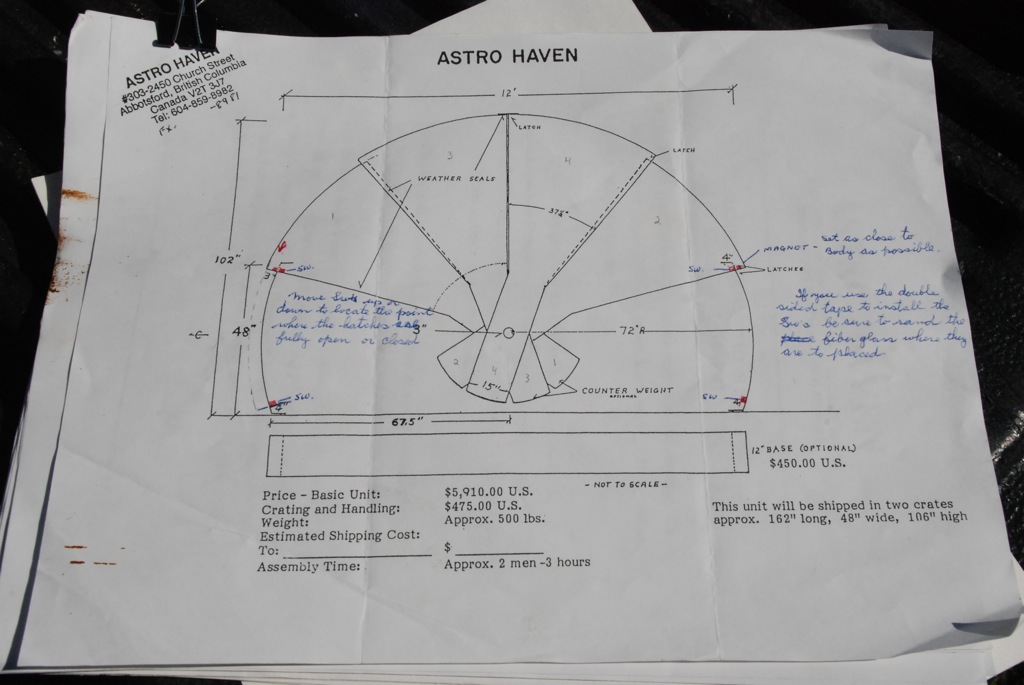 ASTRO HAVEN
ASTRO HAVEN
#303-2450 Church Street
Abbotsford, British Columbia
Canada V2T 3J7
Tel: 604-859-8982
12'
LATCH
LATCH
3
4
WEATHER SEALS
37¼°
1
2
102"
SW.
3"
Move Switch up or
down to locate the point
where the hatches are
fully open or closed
48"
67.5"
4"
SW.
72"R
15"
2
4
3
1
COUNTER WEIGHT
OPTIONAL
4"
SW.
MAGNET - set as close to
Body as possible.
LATCHES
If you use the double
sided tape to install the
Sw's be sure to sand the
fiber glass where they
are to placed
SW
12" BASE (OPTIONAL)
$450.00 U.S.
- NOT TO SCALE -
Price - Basic Unit: $5,910.00 U.S.
Crating and Handling: $475.00 U.S.
Weight: Approx. 500 lbs.
Estimated Shipping Cost:
To: $
Assembly Time: Approx. 2 men -3 hours
This unit will be shipped in two crates
approx. 162" long, 48" wide, 106" high